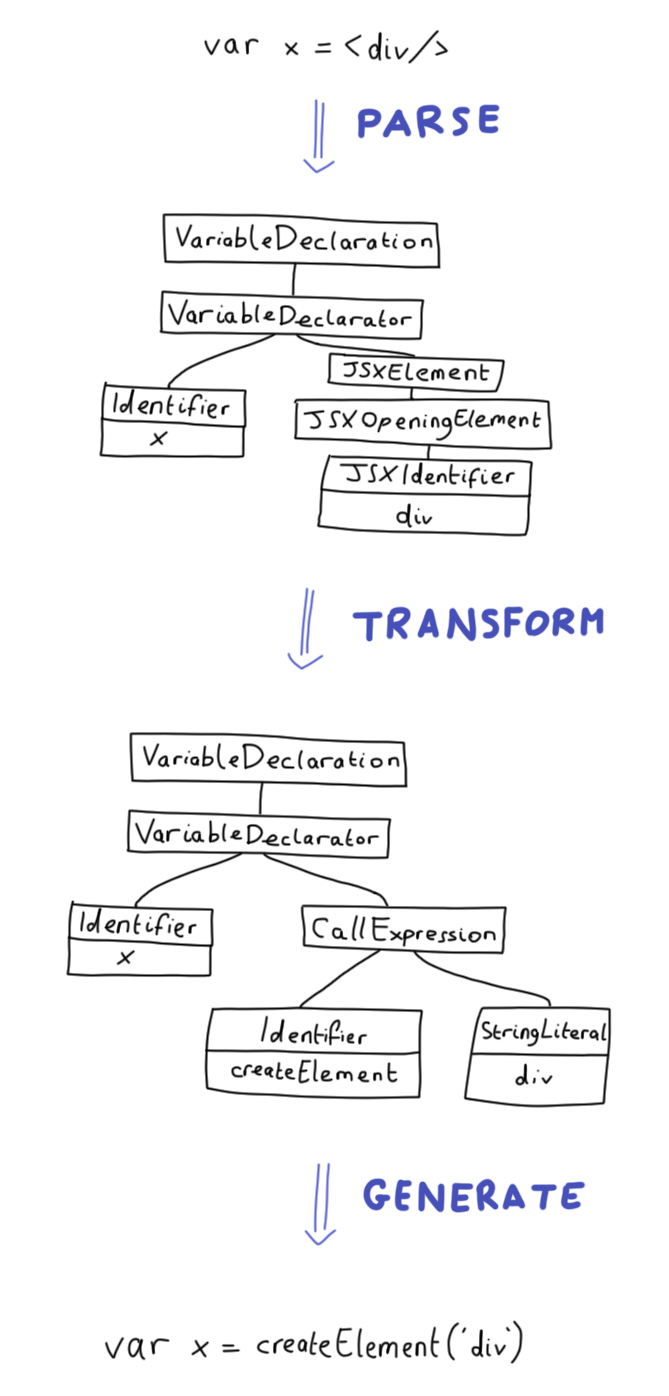 var x = <div/>
PARSE
VariableDeclaration
VariableDeclarator
JSXElement
Identifier
x
JSXOpeningElement
JSXIdentifier
div
TRANSFORM
VariableDeclaration
VariableDeclarator
Identifier
x
CallExpression
Identifier
createElement
StringLiteral
div
GENERATE
var x = createElement('div')